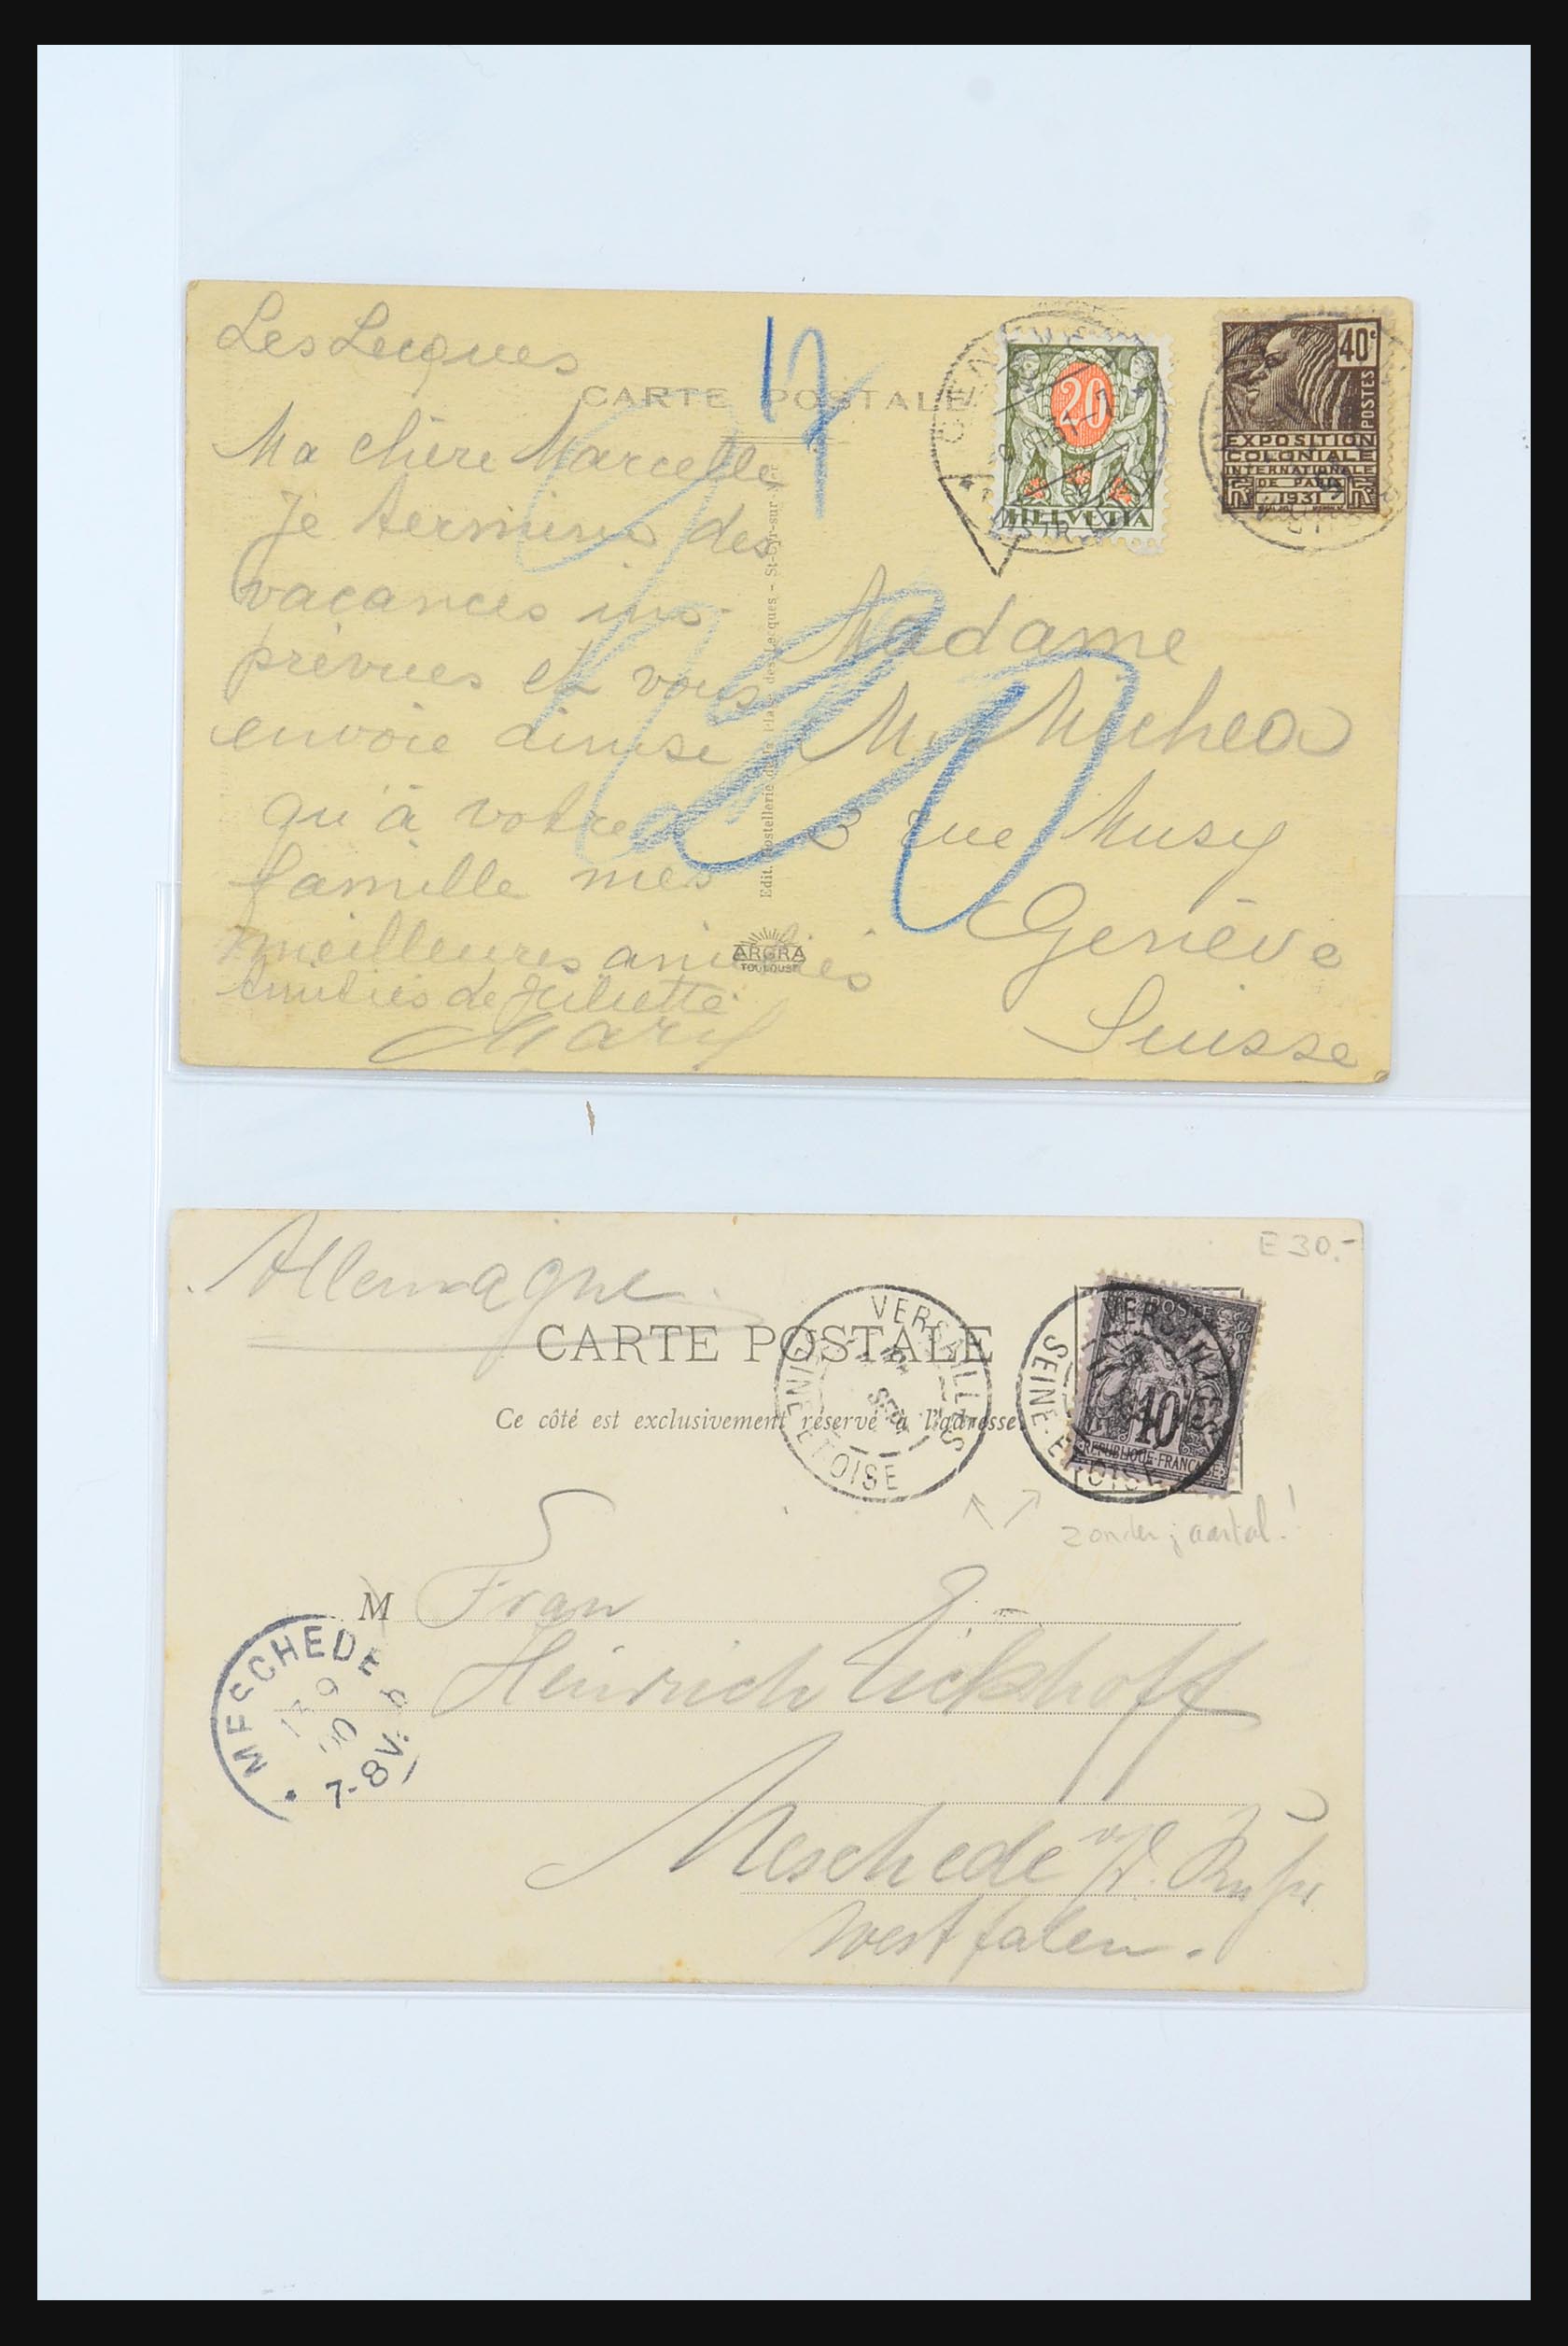 Les Lecques
CARTE POSTALE
17
Ma chère Marcelle
Je termine des
vacances im-
prévues et vous
envoie ainsi
qu'à votre
famille mes
meilleures amitiés
Amitiés de Juliette
Mary
20
HELVETIA
GENÈVE
40c
POSTES
EXPOSITION
COLONIALE
INTERNATIONALE
DE PARIS
1931
Edit. Hostellerie de la Plage des Lecques - St-Cyr-sur-Mer
ARGRA
TOULOUSE
20
Madame
M. Michea
3 rue Musy
Genève
Suisse
E 30.-
Allemagne
CARTE POSTALE
Ce côté est exclusivement réservé à l'adresse.
VERSAILLES
SEPT
SEINE-ET-OISE
VERSAILLES
SEINE-ET-OISE
POSTES
10
REPUBLIQUE FRANCAISE
zonder jaartal!
M Frau
Heinrich Eickhoff
Meschede a/d. Ruhr
Westfalen.
MESCHEDE
13 9
00
7-8V.